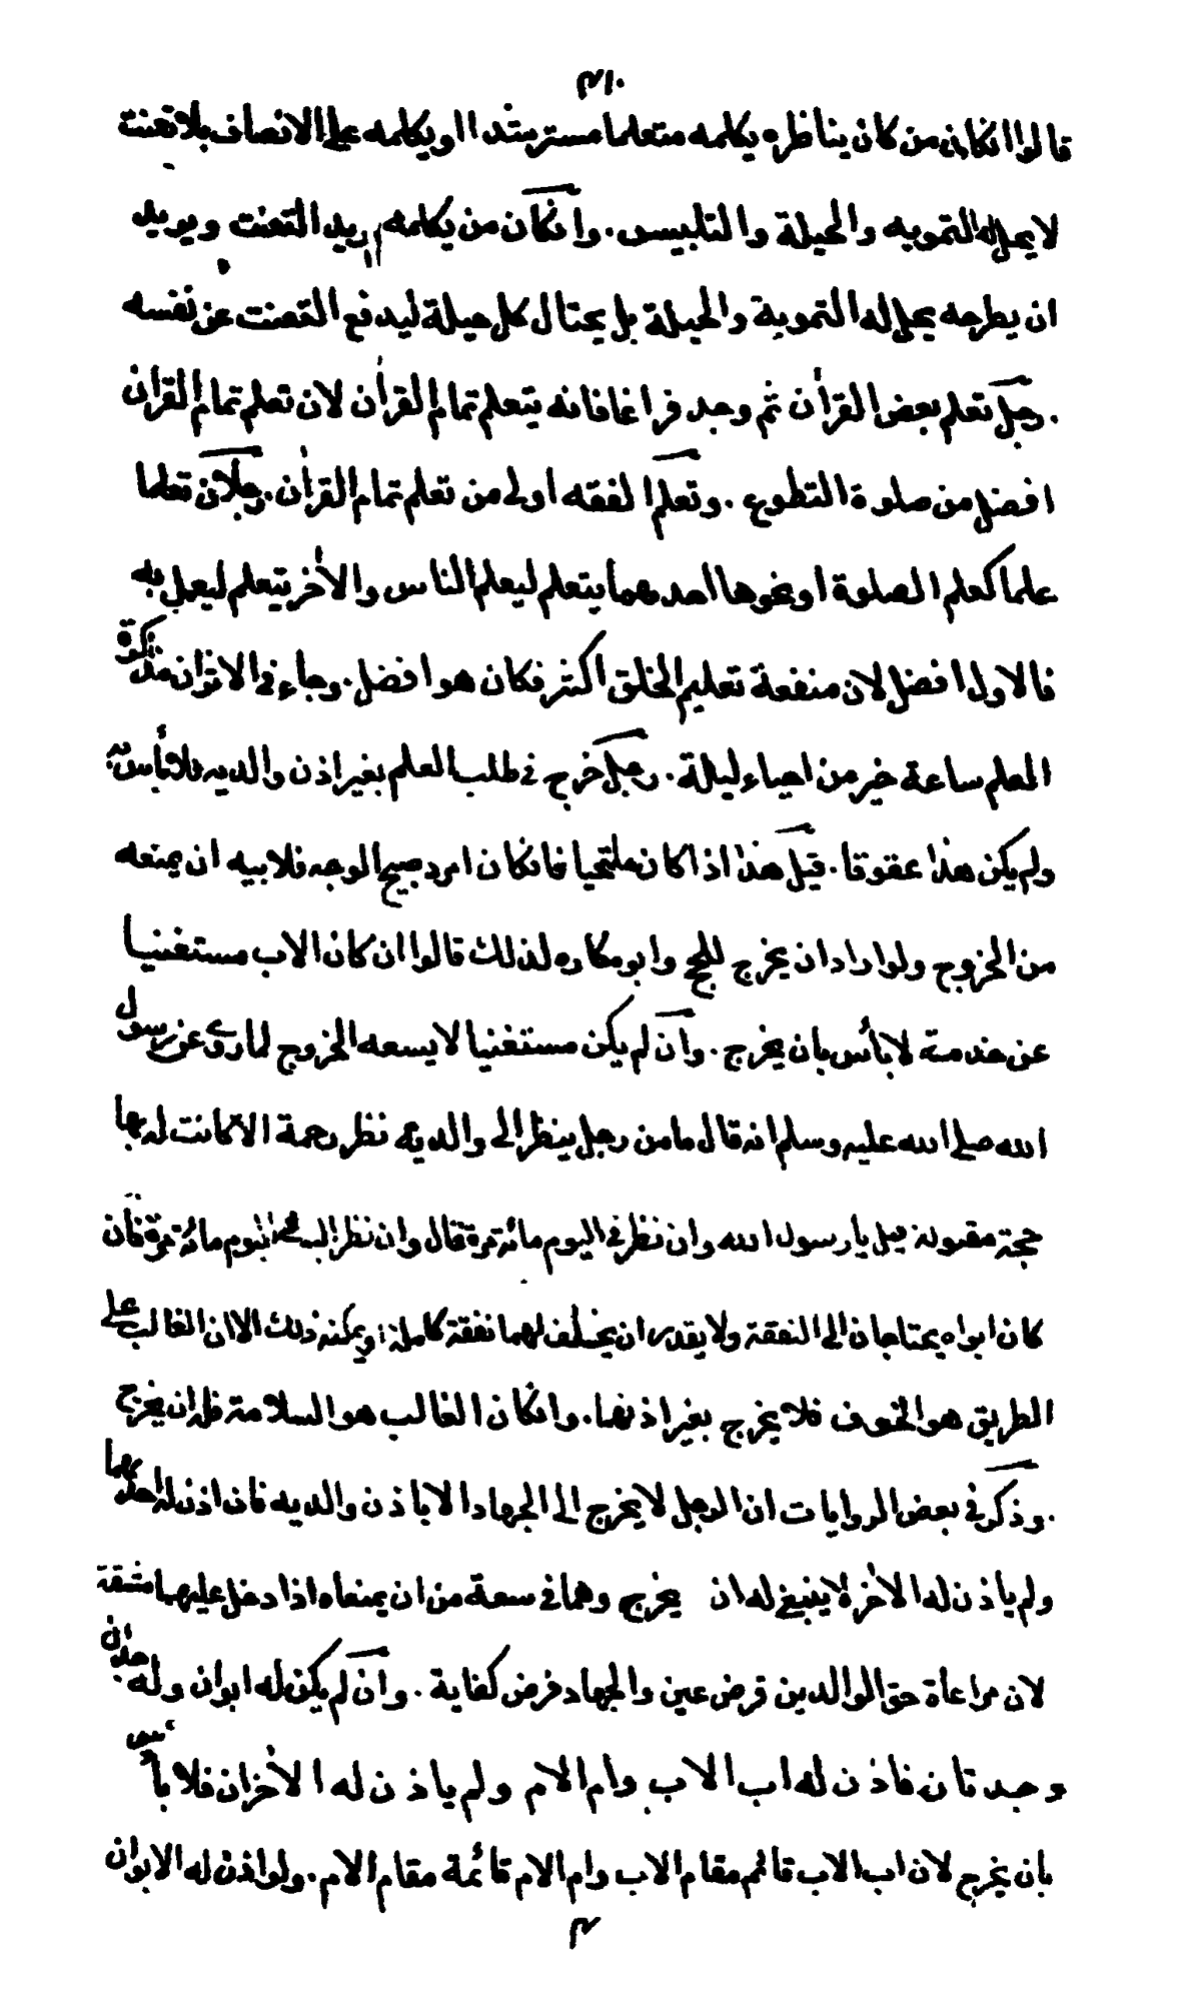 ٣١٠
قالوا انكان من كان يناظره يكلمه متعلما مسترشدا او يكلمه على الانصاف بلا تعنت
لا يحل له التمويه والحيلة والتلبيس. وانكان من يكلمه يريد التعنت ويريد
ان يطرحه يحل له التمويه والحيلة بل يحتال كل حيلة ليدفع التعنت عن نفسه
. رجل تعلم بعض القرأن ثم وجد فراغا فانه يتعلم تمام القرأن لان تعلم تمام القران
افضل من صلوة التطوع. وتعلم الفقه اولى من تعلم تمام القرأن. رجلان تعلما
علما كعلم الصلوة او نحوها احدهما يتعلم ليعلم الناس والأخر يتعلم ليعمل به
فالاول افضل لان منفعة تعليم الخلق اكثر فكان هو افضل. وجاء فى الاثر ان مذاكرة
العلم ساعة خير من احياء ليلة. رجل خرج فى طلب العلم بغير اذن والديه فلا بأس به
ولم يكن هذا عقوقا. قيل هذا اذا كان ملتحيا فانكان امرد صبيح الوجه فلابيه ان يمنعه
من الخروج ولو اراد ان يخرج للحج وابوه كاره لذلك قالوا ان كان الاب مستغنيا
عن خدمته لا بأس بان يخرج. وان لم يكن مستغنيا لا يسعه الخروج لما روى عن رسول
الله صلى الله عليه وسلم انه قال ما من رجل ينظر الى والديه نظر رحمة الا كانت له بها
حجة مقبولة قيل يا رسول الله وان نظر فى اليوم مائة مرة قال وان نظر اليه فى اليوم مائة مرة فان
كان ابواه يحتاجان الى النفقة ولا يقدر ان يخلف لهما نفقة كاملة او يمكنه ذلك الا ان الغالب على
الطريق هو الخوف فلا يخرج بغير اذنهما. وانكان الغالب هو السلامة فله ان يخرج
. وذكر فى بعض الروايات ان الرجل لا يخرج الى الجهاد الا باذن والديه فان اذن له احدهما
ولم ياذن له الأخر لا ينبغى له ان يخرج وهما فى سعة من ان يمنعاه اذا دخل عليهما مشقة
لان مراعاة حق الوالدين فرض عين والجهاد فرض كفاية. وان لم يكن له ابوان وله جدان
وجدتان فاذن له اب الاب وام الام ولم ياذن له الأخران فلا بأس
بان يخرج لان اب الاب قائم مقام الاب وام الام قائمة مقام الام. ولو اذن له الابوان